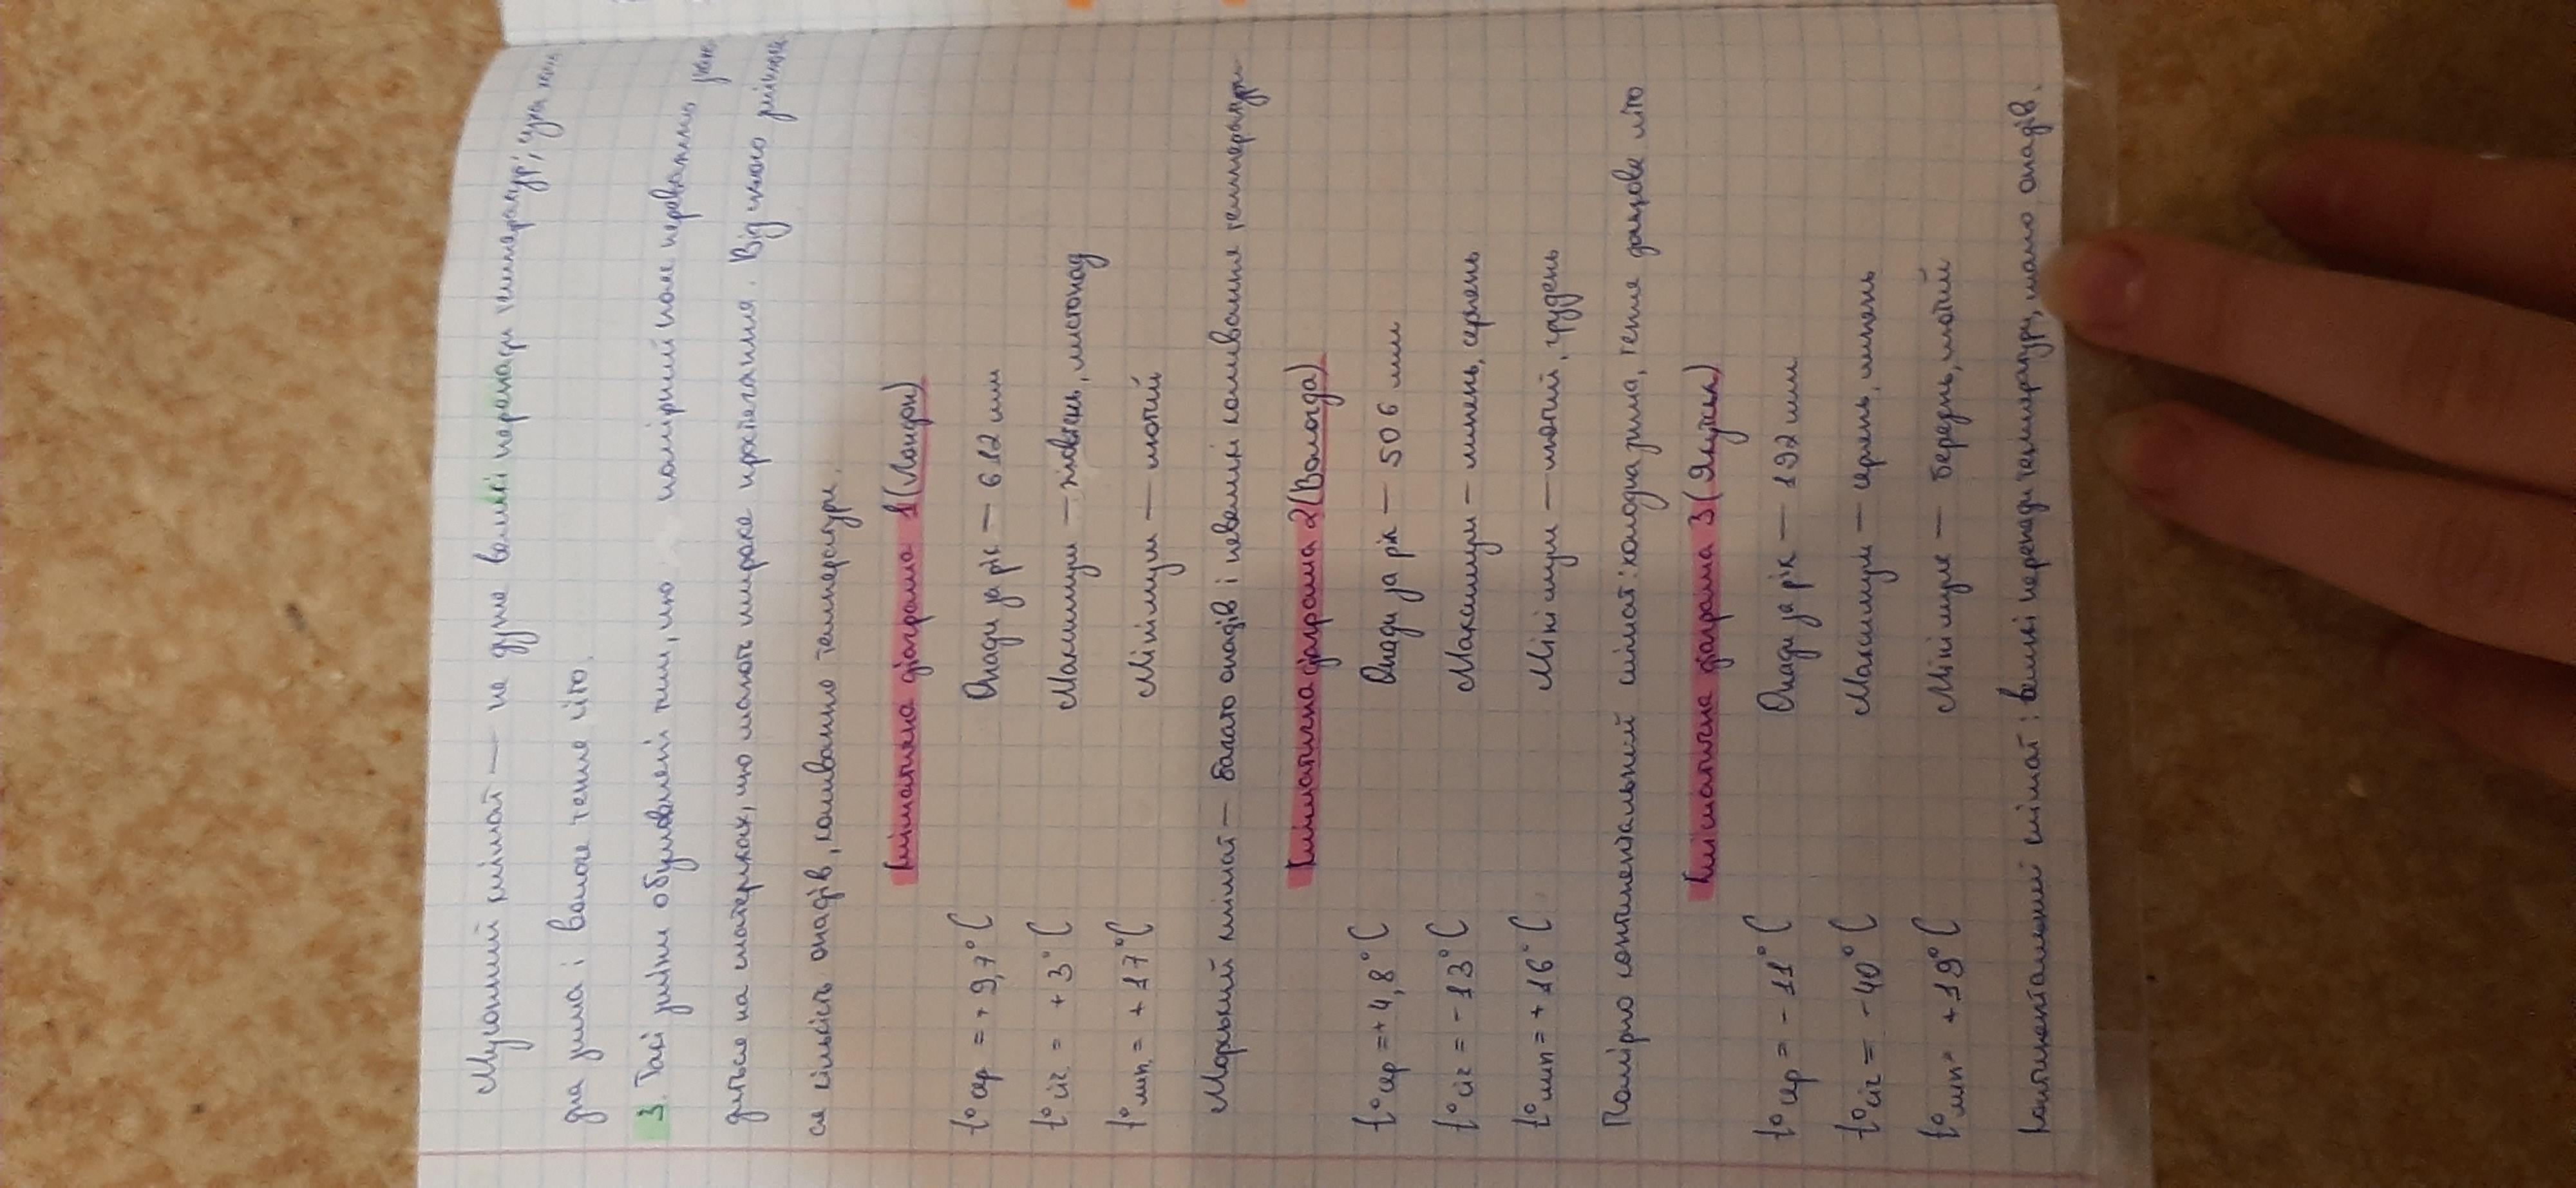 Мусонний клімат — не дуже великі перепади температур, суха холо
дна зима і вологе тепле літо.
3. Такі зміни обумовлені тим, що помірний пояс переважно
диться на материках, що мають широке простягання. Від цього
ся кількість опадів, коливання температури.
Кліматична діаграма 1 (Лондон)
t° сер = + 9,7° C Опади за рік — 612 мм
t° січ = + 3° C Максимум — жовтень, листопад
t° лип = + 17° C Мінімум — лютий
Морський клімат — багато опадів і невеликі коливання температур
Кліматична діаграма 2 (Вологда)
t° сер = + 4,8° C Опади за рік — 506 мм
t° січ = - 13° C Максимум — липень, серпень
t° лип = + 16° C Мінімум — лютий, грудень
Помірно континентальний клімат: холодна зима, тепле дощове літо
Кліматична діаграма 3 (Якутськ)
t° сер = - 11° C Опади за рік — 192 мм
t° січ = - 40° C Максимум — серпень, липень
t° лип = + 19° C Мінімум — березень, лютий
Континентальний клімат: великі перепади температури, мало опадів.